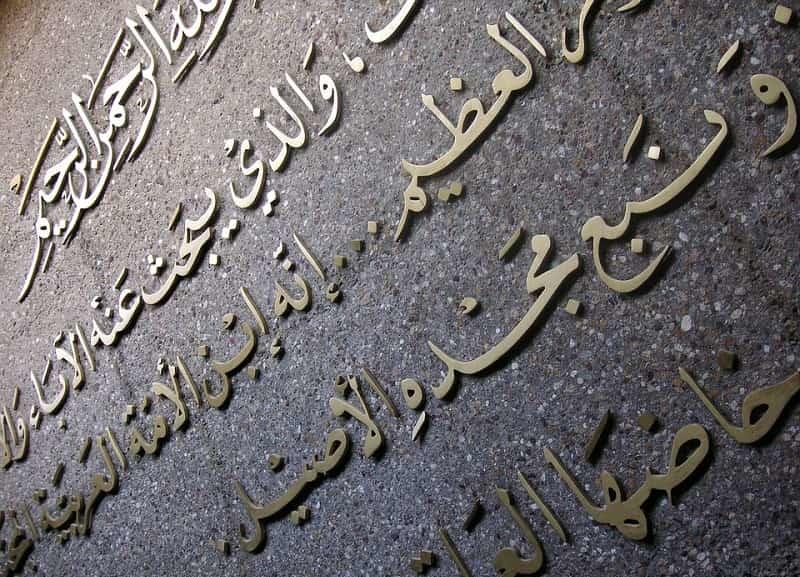 الله الرَّحمن الرَّحيم
، وَالذي يبحث عَنْه الآبَاء
العَظيم ... إنّه ابْن الأمّة العَربيّة
وَنَبع مَجْدهِ الأصيْل.
خاضَها